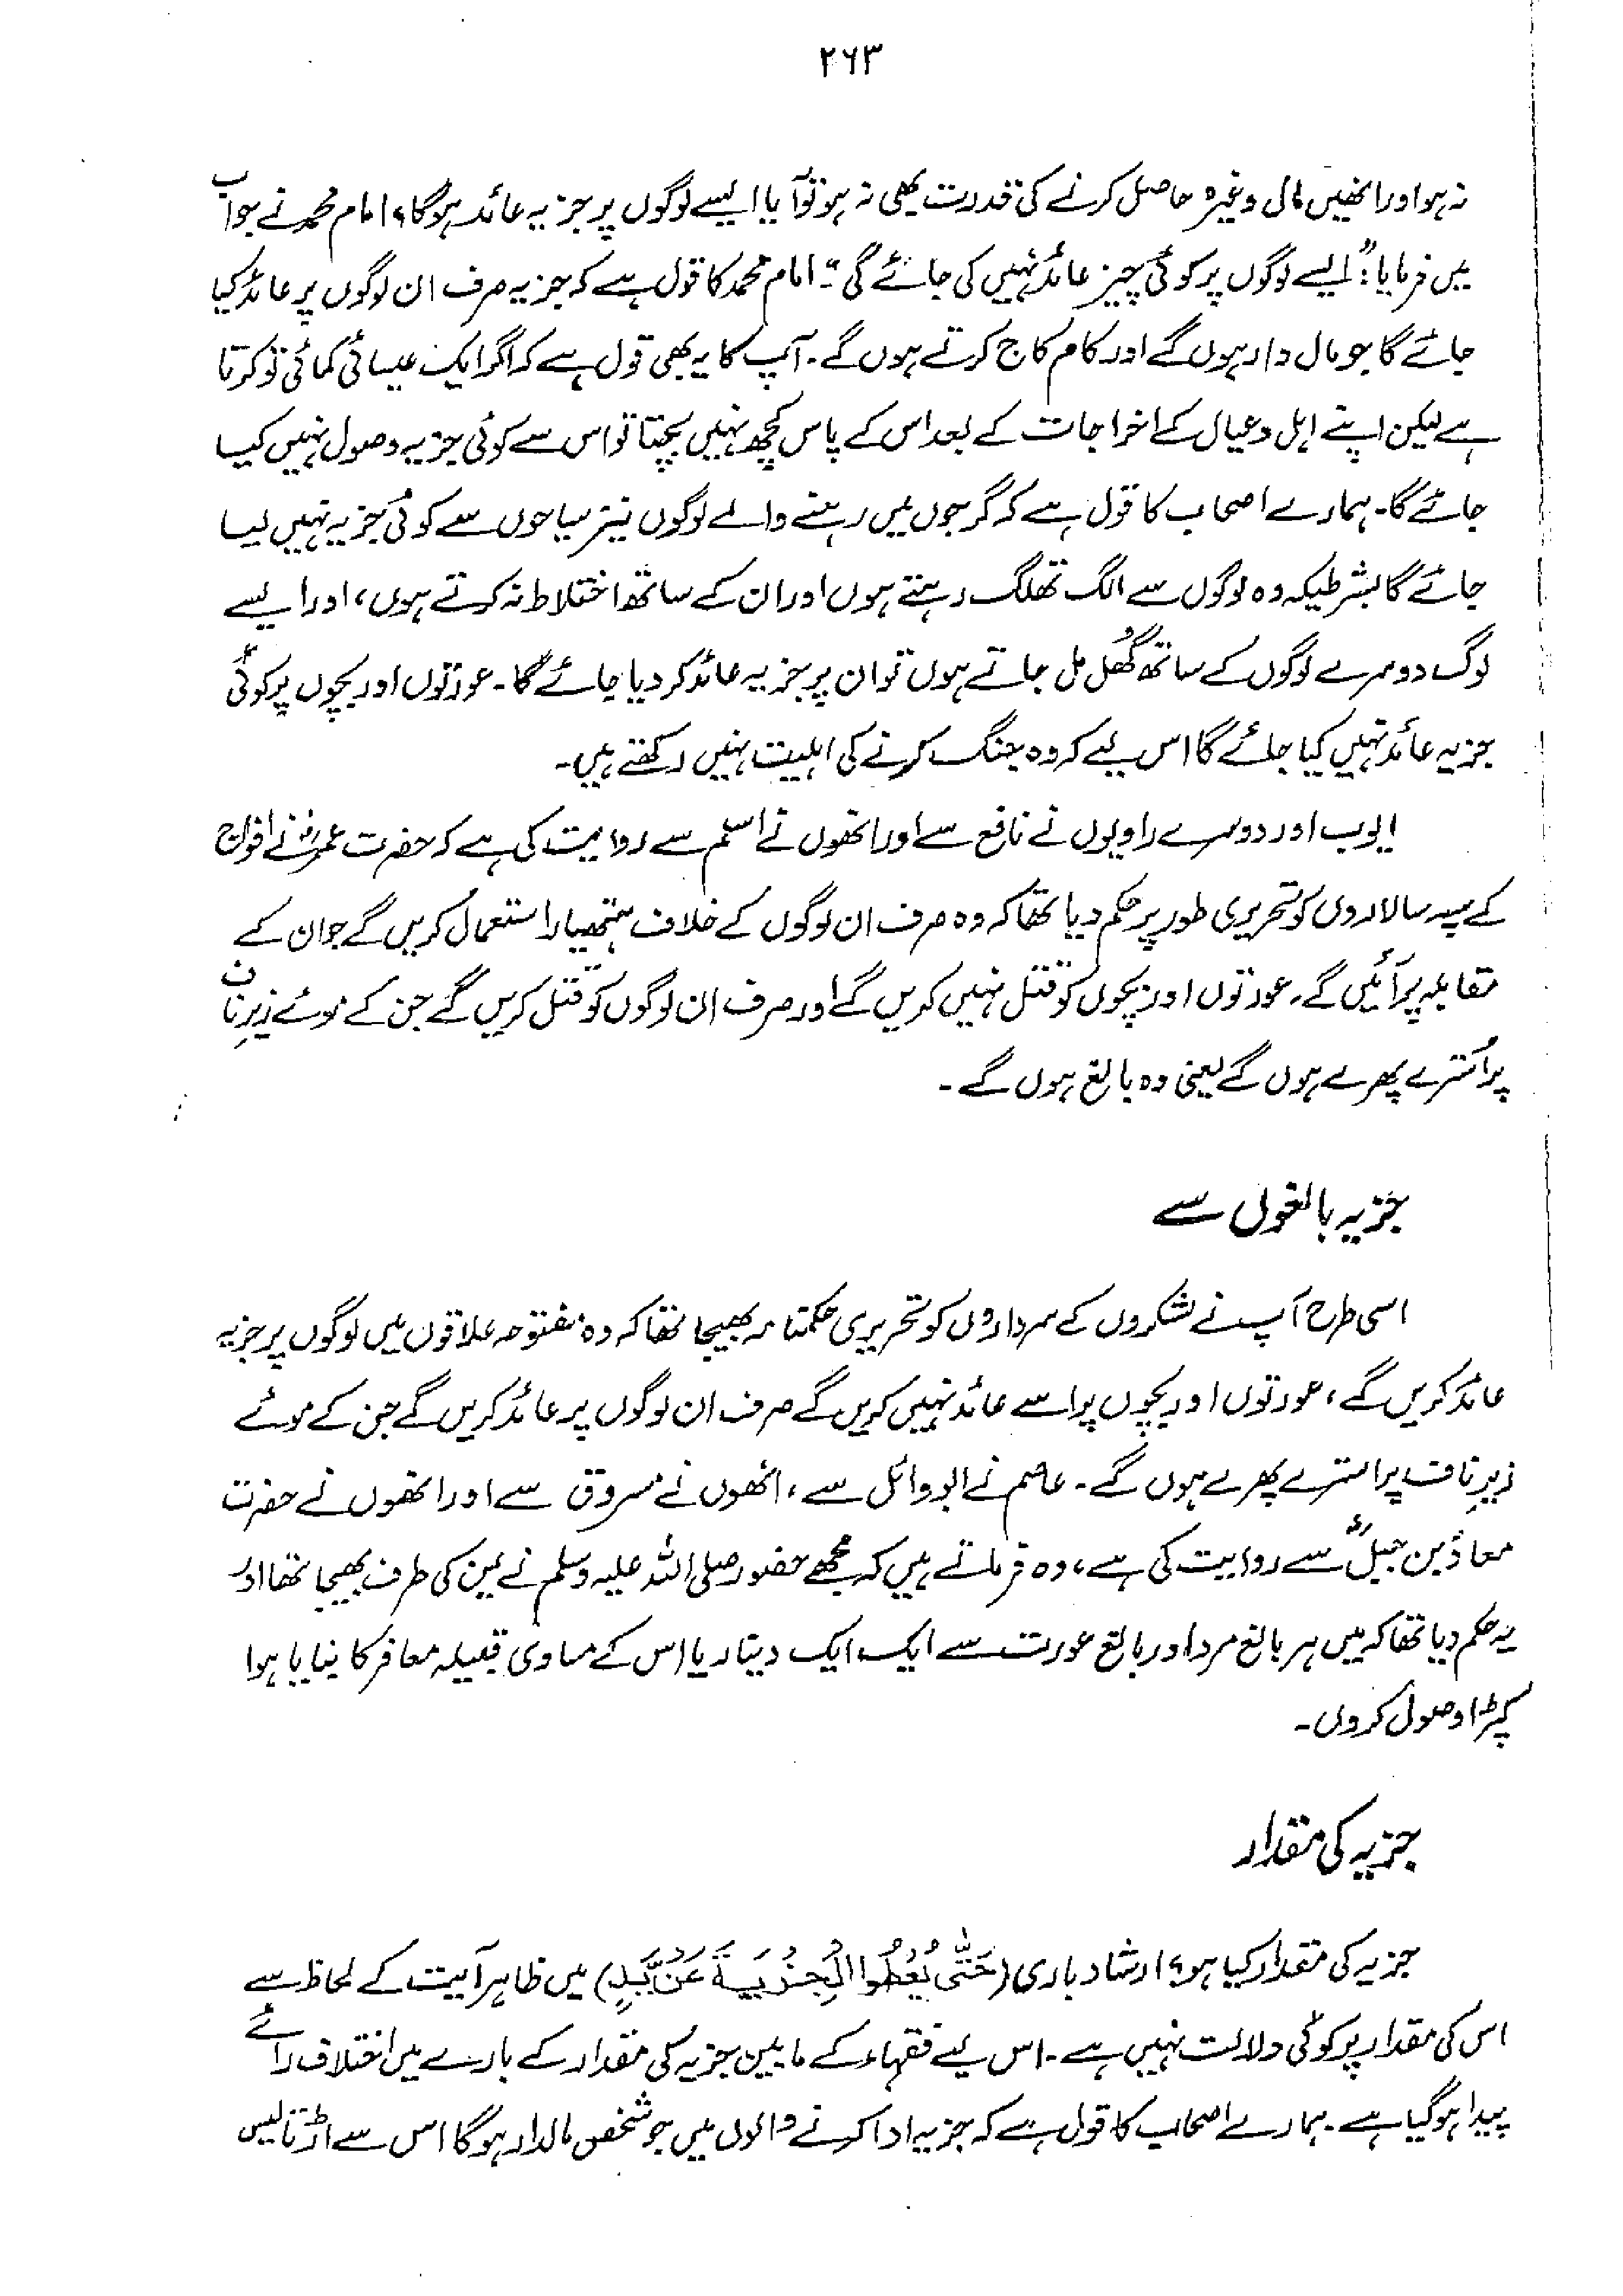 ۲۶۳
نہ ہو اور انھیں مال وغیرہ حاصل کرنے کی قدرت بھی نہ ہو تو آیا ایسے لوگوں پر جزیہ عائد ہوگا؟ امام محمد نے جواب
میں فرمایا: "ایسے لوگوں پر کوئی چیز عائد نہیں کی جائے گی"۔ امام محمد کا قول ہے کہ جزیہ صرف ان لوگوں پر عائد کیا
جائے گا جو مال دار ہوں گے اور کام کاج کرتے ہوں گے۔ آپ کا یہ بھی قول ہے کہ اگر ایک عیسائی کمائی تو کرتا
ہے لیکن اپنے اہل و عیال کے اخراجات کے بعد اس کے پاس کچھ نہیں بچتا تو اس سے کوئی جزیہ وصول نہیں کیا
جائے گا۔ ہمارے اصحاب کا قول ہے کہ گرجوں میں رہنے والے لوگوں نیز سیاحوں سے کوئی جزیہ نہیں لیا
جائے گا بشرطیکہ وہ لوگوں سے الگ تھلگ رہتے ہوں اور ان کے ساتھ اختلاط نہ کرتے ہوں، اور ایسے
لوگ دوسرے لوگوں کے ساتھ گھُل مل جاتے ہوں تو ان پر جزیہ عائد کر دیا جائے گا۔ عورتوں اور بچوں پر کوئی
جزیہ عائد نہیں کیا جائے گا اس لیے کہ وہ جنگ کرنے کی اہلیت نہیں رکھتے ہیں۔
ایوب اور دوسرے راویوں نے نافع سے اور انھوں نے اسلم سے روایت کی ہے کہ حضرت عمرؓ نے افواج
کے سپہ سالاروں کو تحریری طور پر حکم دیا تھا کہ وہ صرف ان لوگوں کے خلاف ہتھیار استعمال کریں گے جو ان کے
مقابلہ پر آئیں گے، عورتوں اور بچوں کو قتل نہیں کریں گے اور صرف ان لوگوں کو قتل کریں گے جن کے موئے زیرِ ناف
پر اُسترے پھرے ہوں گے یعنی وہ بالغ ہوں گے۔
جزیہ بالغوں سے
اسی طرح آپ نے لشکروں کے سرداروں کو تحریری حکمنامہ بھیجا تھا کہ وہ مفتوحہ علاقوں میں لوگوں پر جزیہ
عائد کریں گے، عورتوں اور بچوں پر اسے عائد نہیں کریں گے صرف ان لوگوں پر عائد کریں گے جن کے موئے
زیرِ ناف پر استرے پھرے ہوں گے۔ عاصم نے ابو وائل سے، انھوں نے مسروق سے اور انھوں نے حضرت
معاذ بن جبلؓ سے روایت کی ہے، وہ فرماتے ہیں کہ مجھے حضور صلی اللہ علیہ وسلم نے یمن کی طرف بھیجا تھا اور
یہ حکم دیا تھا کہ میں ہر بالغ مرد اور بالغ عورت سے ایک ایک دینار یا اس کے مساوی قبیلہ معافر کا بنایا ہوا
کپڑا وصول کروں۔
جزیہ کی مقدار
جزیہ کی مقدار کیا ہو؟ ارشاد باری (حَتّٰی یُعْطُوا الْجِزْیَةَ عَنْ یَّدٍ) میں ظاہر آیت کے لحاظ سے
اس کی مقدار پر کوئی دلالت نہیں ہے۔ اس لیے فقہاء کے مابین جزیہ کی مقدار کے بارے میں اختلاف رائے
پیدا ہو گیا ہے۔ ہمارے اصحاب کا قول ہے کہ جزیہ ادا کرنے والوں میں جو شخص مالدار ہوگا اس سے اڑتالیس